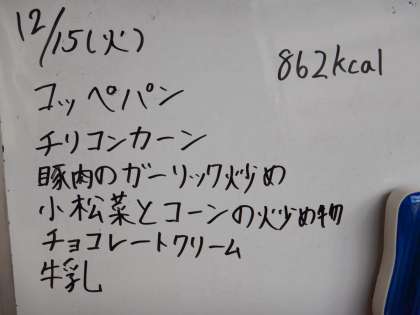 12/15(火)
862kcal
コッペパン
チリコンカーン
豚肉のガーリック炒め
小松菜とコーンの炒め物
チョコレートクリーム
牛乳